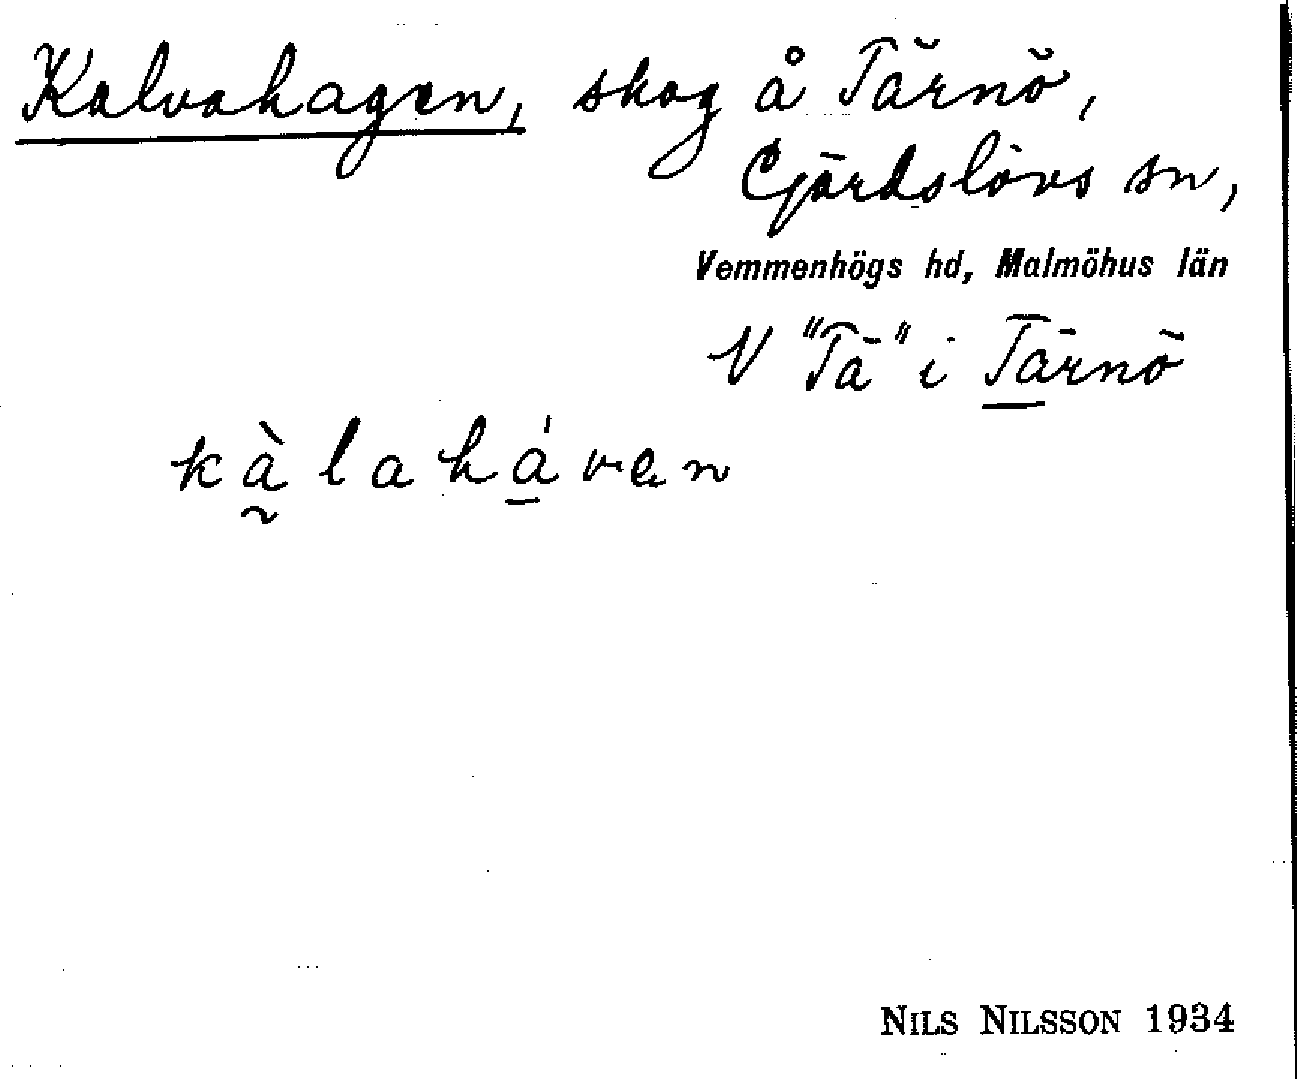 Kalvahagen, skog å Tärnö,
Gärdslövs sn,
Vemmenhögs hd, Malmöhus län
V "Tä" i Tärnö
kà̰lahá̱ven
NILS NILSSON 1934